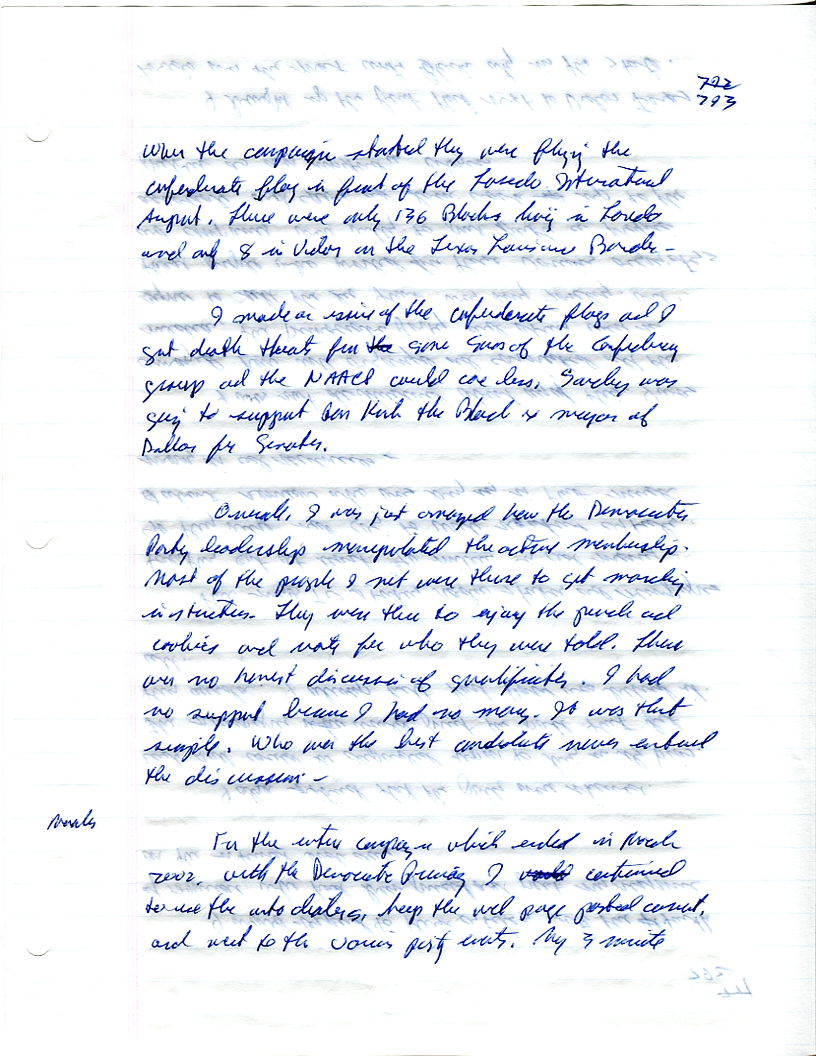 722
793
When the campaign started they were flying the
confederate flag in front of the Laredo International
Airport. There were only 136 Blacks living in Laredo
and only 8 in Vidor on the Texas Louisiana Border -
I made an issue of the confederate flags and I
got death threats from the some Sons of the Confederacy
group and the NAACP could care less. Surely was
going to support Ron Kirk the Black ex mayor of
Dallas for Senator.
Overall, I was just amazed how the Democratic
Party leadership manipulated the active membership.
Most of the people I met were there to get marching
instructions. They were there to enjoy the punch and
cookies and vote for who they were told. There
was no honest discussion of qualifications. I had
no support because I had no money. It was that
simple. Who was the best candidate never entered
the discussion -
Morales
For the entire campaign which ended in March
2002, with the Democratic Primary I continued
to use the auto dialers, keep the web page posted current,
and went to the various party events. My 3 minute